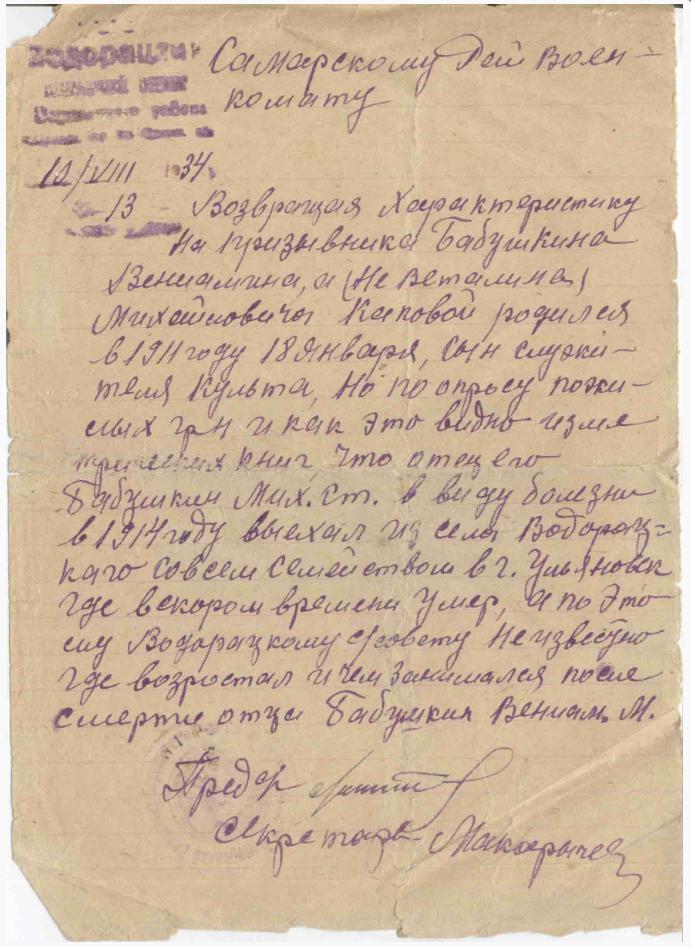 Водорацкий
сельский совет
района
Самарскому Рай Воен-
комату
12/VIII 1934
13 - Возвращая Характеристику
на призывника Бабушкина
Вениамина, а (не Веталина)
Михайловича Каковой родился
в 1911 году 18 января, сын служи-
теля культа, но по опросу пожи-
лых грн и как это видно из ме
трических книг, что отец его
Бабушкин Мих. Ст. в виду болезни
в 1914 году выехал из села Водорац-
каго совсем семейством в г. Ульяновск
где вскором времени умер, а по это
му Водорацкому с/совету неизвестно
где возростал и чем занимался после
смерти отца Бабушкин Вениам. М.
Предс
Секретарь Макарычев